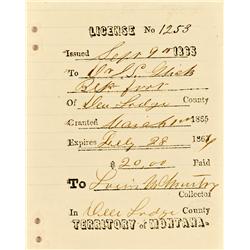 LICENSE No 1253
Issued Sept 9th 1863
To Dr. S. Glick
Of Deer Lodge County
Granted March 1865
Expires July 28 1867
$ 20,00 Paid
To Louis McMurtry
Collector
In Deer Lodge County
TERRITORY OF MONTANA.